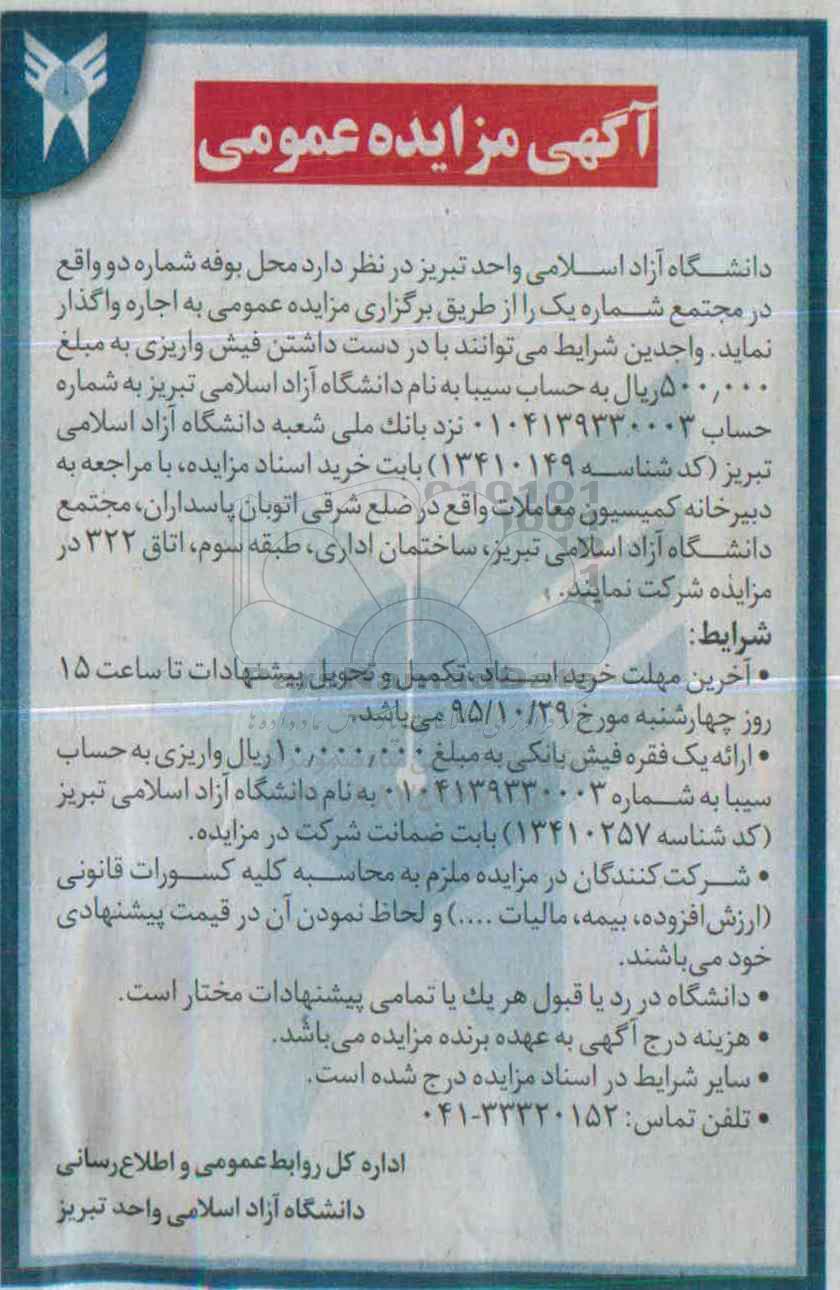 آگهی مزایده عمومی
دانشگاه آزاد اسلامی واحد تبریز در نظر دارد محل بوفه شماره دو واقع
در مجتمع شماره یک را از طریق برگزاری مزایده عمومی به اجاره واگذار
نماید. واجدین شرایط می‌توانند با در دست داشتن فیش واریزی به مبلغ
۵۰۰,۰۰۰ریال به حساب سیبا به نام دانشگاه آزاد اسلامی تبریز به شماره
حساب ۰۱۰۴۱۳۹۳۳۰۰۰۳ نزد بانك ملی شعبه دانشگاه آزاد اسلامی
تبریز (کد شناسه ۱۳۴۱۰۱۴۹) بابت خرید اسناد مزایده، با مراجعه به
دبیرخانه کمیسیون معاملات واقع در ضلع شرقی اتوبان پاسداران، مجتمع
دانشگاه آزاد اسلامی تبریز، ساختمان اداری، طبقه سوم، اتاق ۳۲۲ در
مزایده شرکت نمایند.
شرایط:
• آخرین مهلت خرید اسناد، تکمیل و تحویل پیشنهادات تا ساعت ۱۵
روز چهارشنبه مورخ ۹۵/۱۰/۲۹ می‌باشد.
• ارائه یک فقره فیش بانکی به مبلغ ۱۰,۰۰۰,۰۰۰ریال واریزی به حساب
سیبا به شماره ۰۱۰۴۱۳۹۳۳۰۰۰۳ به نام دانشگاه آزاد اسلامی تبریز
(کد شناسه ۱۳۴۱۰۲۵۷) بابت ضمانت شرکت در مزایده.
• شرکت‌کنندگان در مزایده ملزم به محاسبه کلیه کسورات قانونی
(ارزش‌افزوده، بیمه، مالیات ....) و لحاظ نمودن آن در قیمت پیشنهادی
خود می‌باشند.
• دانشگاه در رد یا قبول هر یك یا تمامی پیشنهادات مختار است.
• هزینه درج آگهی به عهده برنده مزایده می‌باشد.
• سایر شرایط در اسناد مزایده درج شده است.
• تلفن تماس: ۳۳۳۲۰۱۵۲-۰۴۱
اداره کل روابط عمومی و اطلاع‌رسانی
دانشگاه آزاد اسلامی واحد تبریز